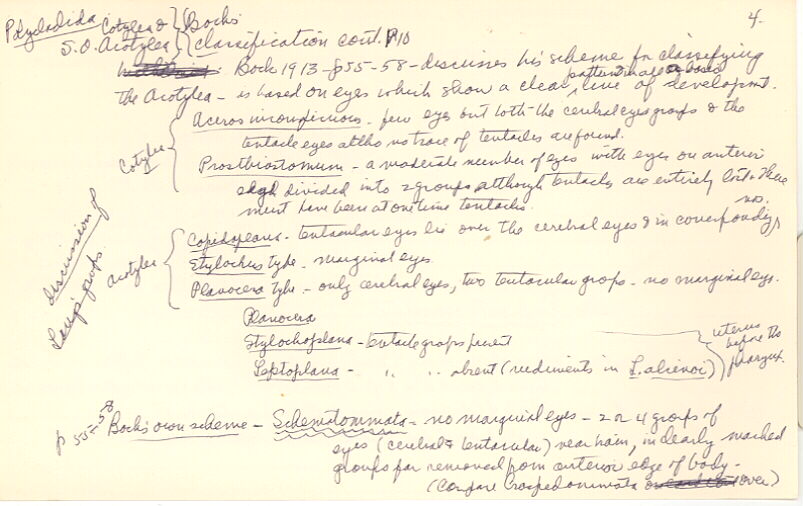 4.
Polycladida Cotylea & } Bock's
S.O. Acotylea } classification cont. P10
Bock 1913 - p 55-58 - discusses his scheme for classifying
the Acotylea - is based on eyes which show a clear line of developmt.
Cotylea { Aceros inconspicuous - few eyes but both the cerebral eyes groups & the
tentacle eyes altho no trace of tentacles are found.
Prosthiostomum - a moderate number of eyes with eyes on anterior
edge divided into 2 groups, although tentacles are entirely lost - there
must have been at one time tentacles.
discussion of
Lang's groups
Acotylea { Copidoplana - tentacular eyes lie over the cerebral eyes & in corresponding no.
Stylochus type - marginal eyes.
Planocera type - only cerebral eyes, two tentacular groups - no marginal eyes.
Planocera
Stylochoplana - tentacle groups present
Leptoplana - " " absent (rudiments in L. alcinoi)
} uterus
before the
pharynx.
p 55-58 Bock's own scheme - Schematommata - no marginal eyes - 2 or 4 groups of
eyes (cerebral & tentacular) near brain, in clearly marked
groups far removed from anterior edge of body -
(compare Craspedommata over)